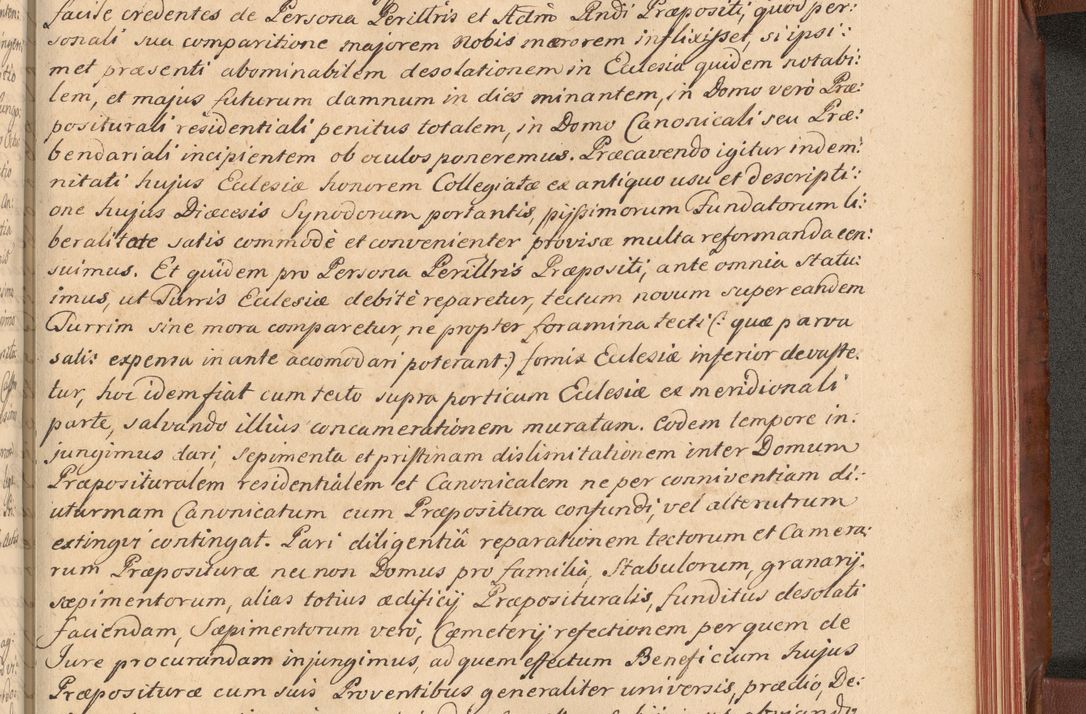 facise credentes de Persona Perillris et Admo Rndi Præpositi, quod per:
sonali sua comparitione majorem nobis mærorem inflixisset, si ipsi:
met præsenti abominabilem desolationem in Ecclesia quidem notabi:
lem, et majus futurum damnum in dies minantem, in Domo verò Præ:
positurali residentiali penitus totalem, in Domo Canonicali seu Præ:
bendariali incipientem ob oculos poneremus. Præcavendo igitur indem:
nitati hujus Ecclesiæ honorem Collegiatæ ex antiquo usu et descripti:
one hujus Diæcesis Synodorum portantis, pijssimorum Fundatorum li:
beralitate satis commodè et convenienter provisæ multa reformanda cen:
suimus. Et quidem pro Persona Perillris Præpositi, ante omnia statu:
imus, ut Turris Ecclesiæ debitè reparetur, tectum novum super eandem
Turrim sine mora comparetur, ne propter foramina tecti (: quæ parva
sali: expensa in ante acomodari poterant:) fornix Ecclesiæ inferior devaste:
tur, hoc idem fiat cum tecto supra porticum Ecclesiæ ex meridionali
parte, salvando illius concamerationem muratam. Eodem tempore in:
jungimus dari, sepimenta et pristinam dislimitationem inter Domum
Præposituralem residentialem et Canonicalem ne per conniventiam di:
uturmam Canonicatum cum Præpositura confundi, vel alterutrum
extingvi contingat. Pari diligentiâ reparationem tectorum et Camera:
rum Præposituræ nec non Domus pro familia, Stabulorum, granarij,
sæpimentorum, alias totius ædificij Præposituralis, funditus desolati
faciendam, Sæpimentorum verò, Cæmeterij refectionem per quem de
Jure procurandam injungimus, ad quem effectum Beneficium hujus
Præposituræ cum suis Proventibus generaliter universis, prædio, De: